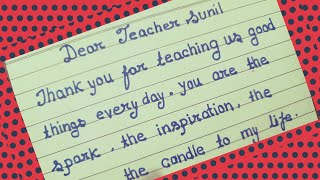 Dear Teacher Sunil
Thank you for teaching us good
things every day. you are the
spark, the inspiration, the
the candle to my life.